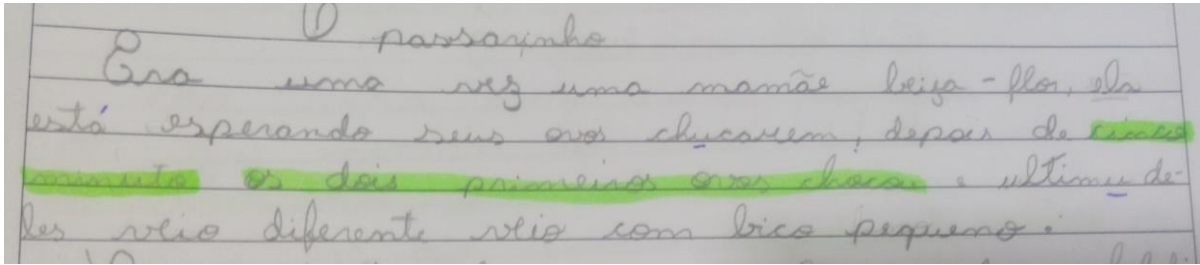 O passarinho
Era uma vez uma mamãe beija-flor, ela
está esperando seus ovos chucarem, depois de cinco
minuto os dois primeiros ovos chocou e ultimu de-
les veio diferente veio com bico pequeno.